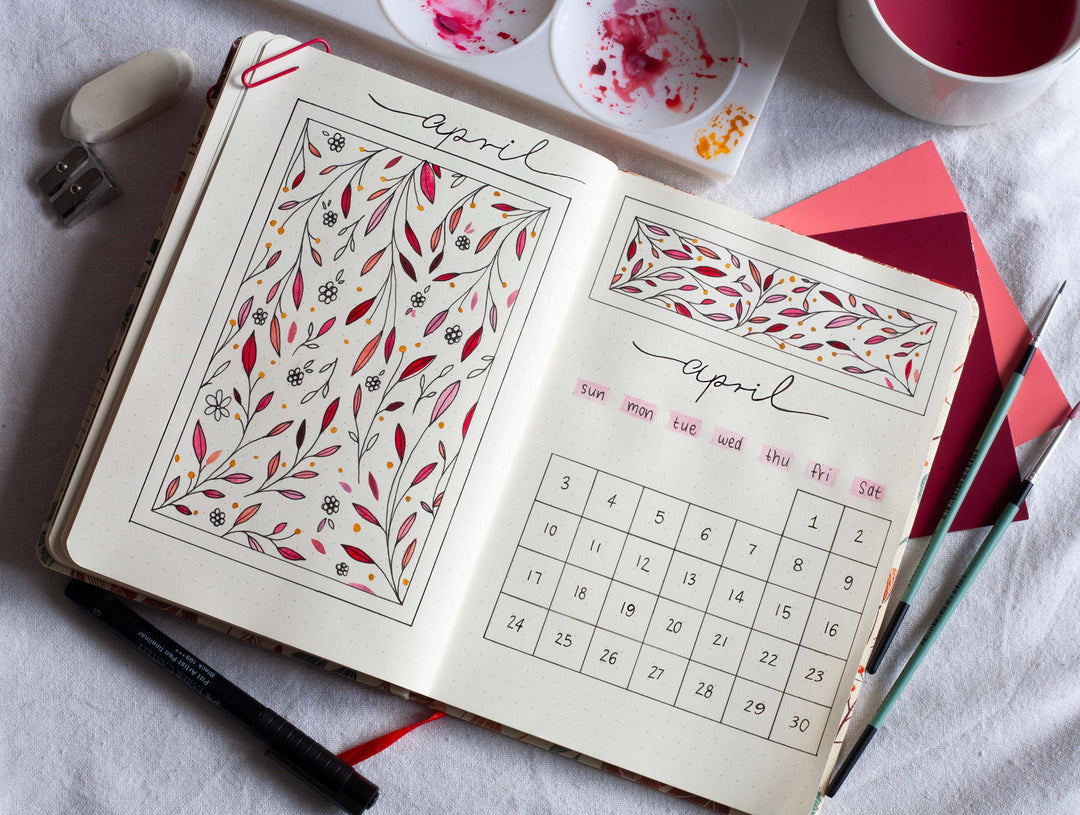 april
april
sun mon tue wed thu fri sat
1 2
3 4 5 6 7 8 9
10 11 12 13 14 15 16
17 18 19 20 21 22 23
24 25 26 27 28 29 30
Pitt Artist Pen fineliner
Black 199
S